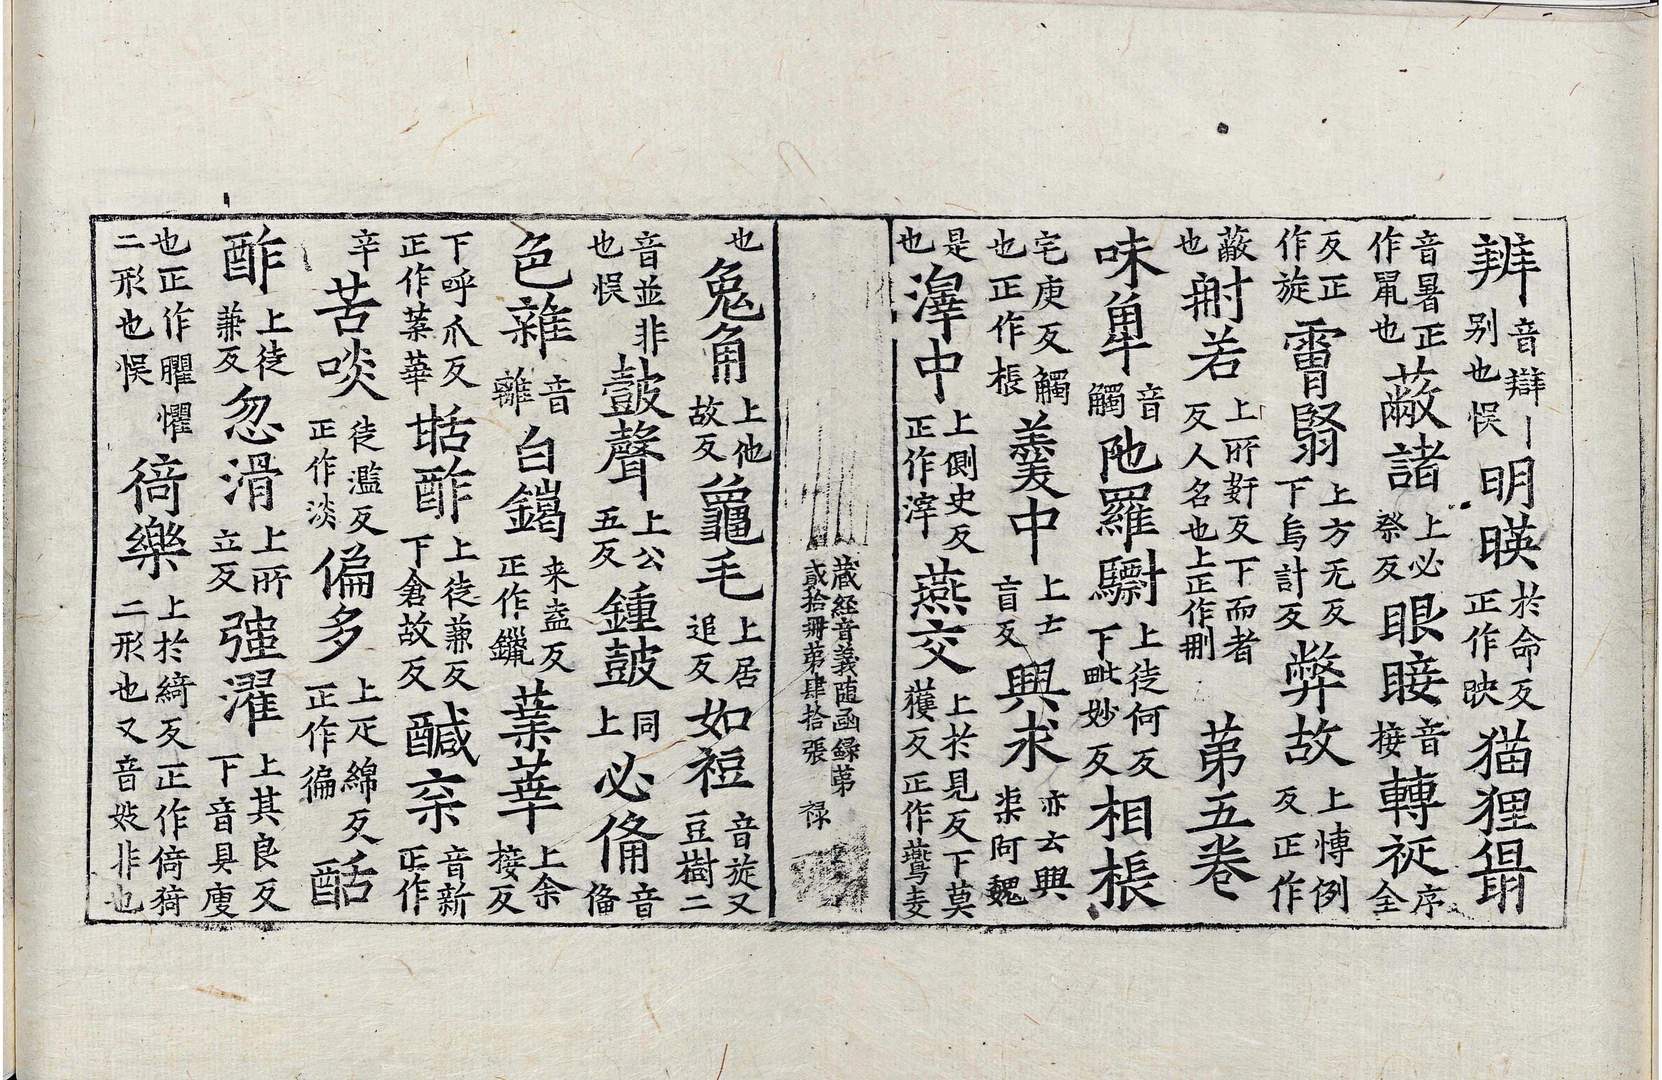 辨音辯別也悮明暎於命反正作映猫狸𤲞
音暑正作鼠也蔽諸上必祭反眼睫音接轉㳬序全
反正作旋䨥腎上方无反下烏計反弊故上慱例反正作
蔽也𠜂若上所姧反下而者反人名也上正作刪第五卷
味𧢲音觸阤羅驃上徒何反下毗妙反相棖
宅庚反觸也正作棖𦎍中上士盲反興求亦云興渠阿魏
是也滓中上側史反正作滓燕交上於見反下莫獲反正作鷰麦
藏經音義随函録第貳拾冊第肆拾張 禄
也兔角上他故反龜毛上居追反如裋音㫌又豆樹二
音並非也悮鼓聲上公五反鍾鼓同上必俻音俻
色雜音離白鑞来盍反正作鑞葉華上余接反
下呼爪反正作葉華甛酢上徒兼反下倉故反醎辛音新正作
辛苦啖徒濫反正作淡偏多上疋綿反正作徧䣶
酢上徒兼反忽滑上所立反強濯上其良反下音具㢏
也正作臞懼二形也悮𢔗樂上於綺反正作倚猗二形也又音妓非也